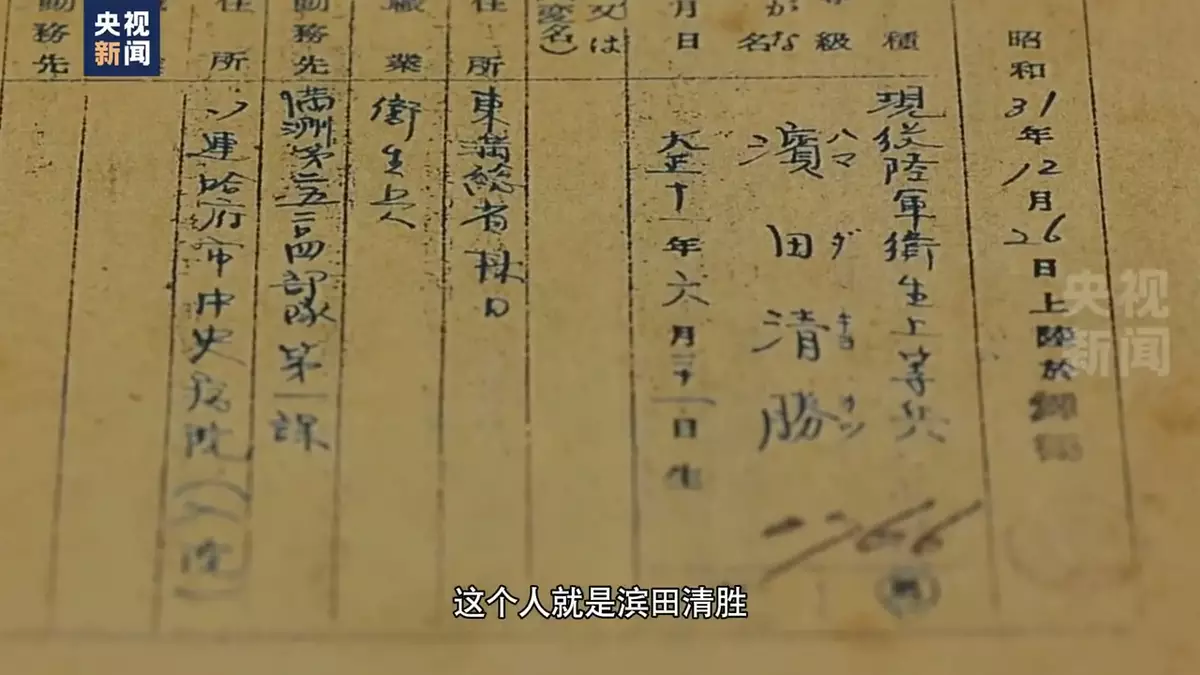 央视
新闻
昭和31年12月26日上陸於
種
現役陸軍衛生上等兵
級
ハマ ダ
がな名
濱田清勝
月日
大正十一年六月三十一日生
又は
変名)
住所
東満総省
職業
衛生上人
勤務先
満洲第二五二四部隊第一課
住所
市中央病院(入院)
勤務先
1766
央视
新闻
这个人就是滨田清胜